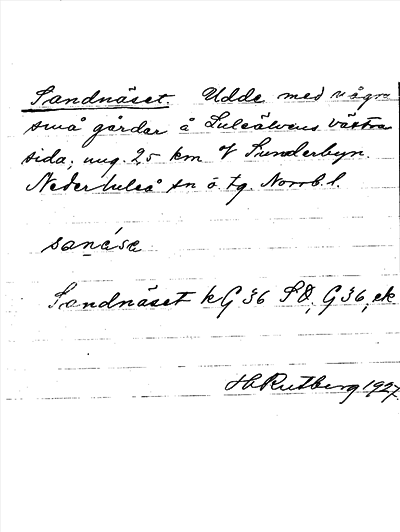 Sandnäset. Udde med några
små gårdar å Luleälvens västra
sida, ung. 25 km V Sunderbyn.
Nederluleå sn ö. tg. Norrb. l.
sanǻsə
Sandnäset kG 36 SO, G 36, ek
H Rutberg 1927